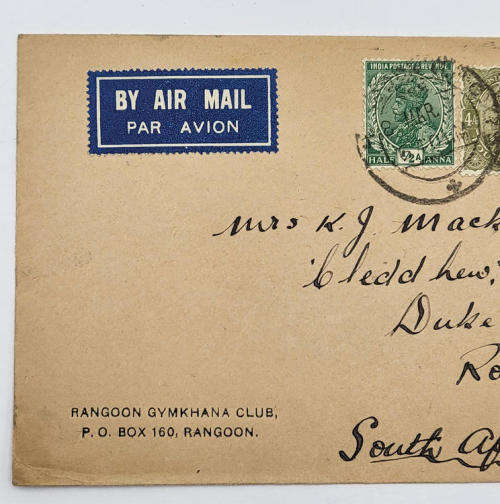 BY AIR MAIL
PAR AVION
INDIA POSTAGE & REVENUE
HALF ½A ANNA
Mrs K. J. Mack
'Cleddhew,'
Duke
Ro
South Af
RANGOON GYMKHANA CLUB,
P. O. BOX 160, RANGOON.